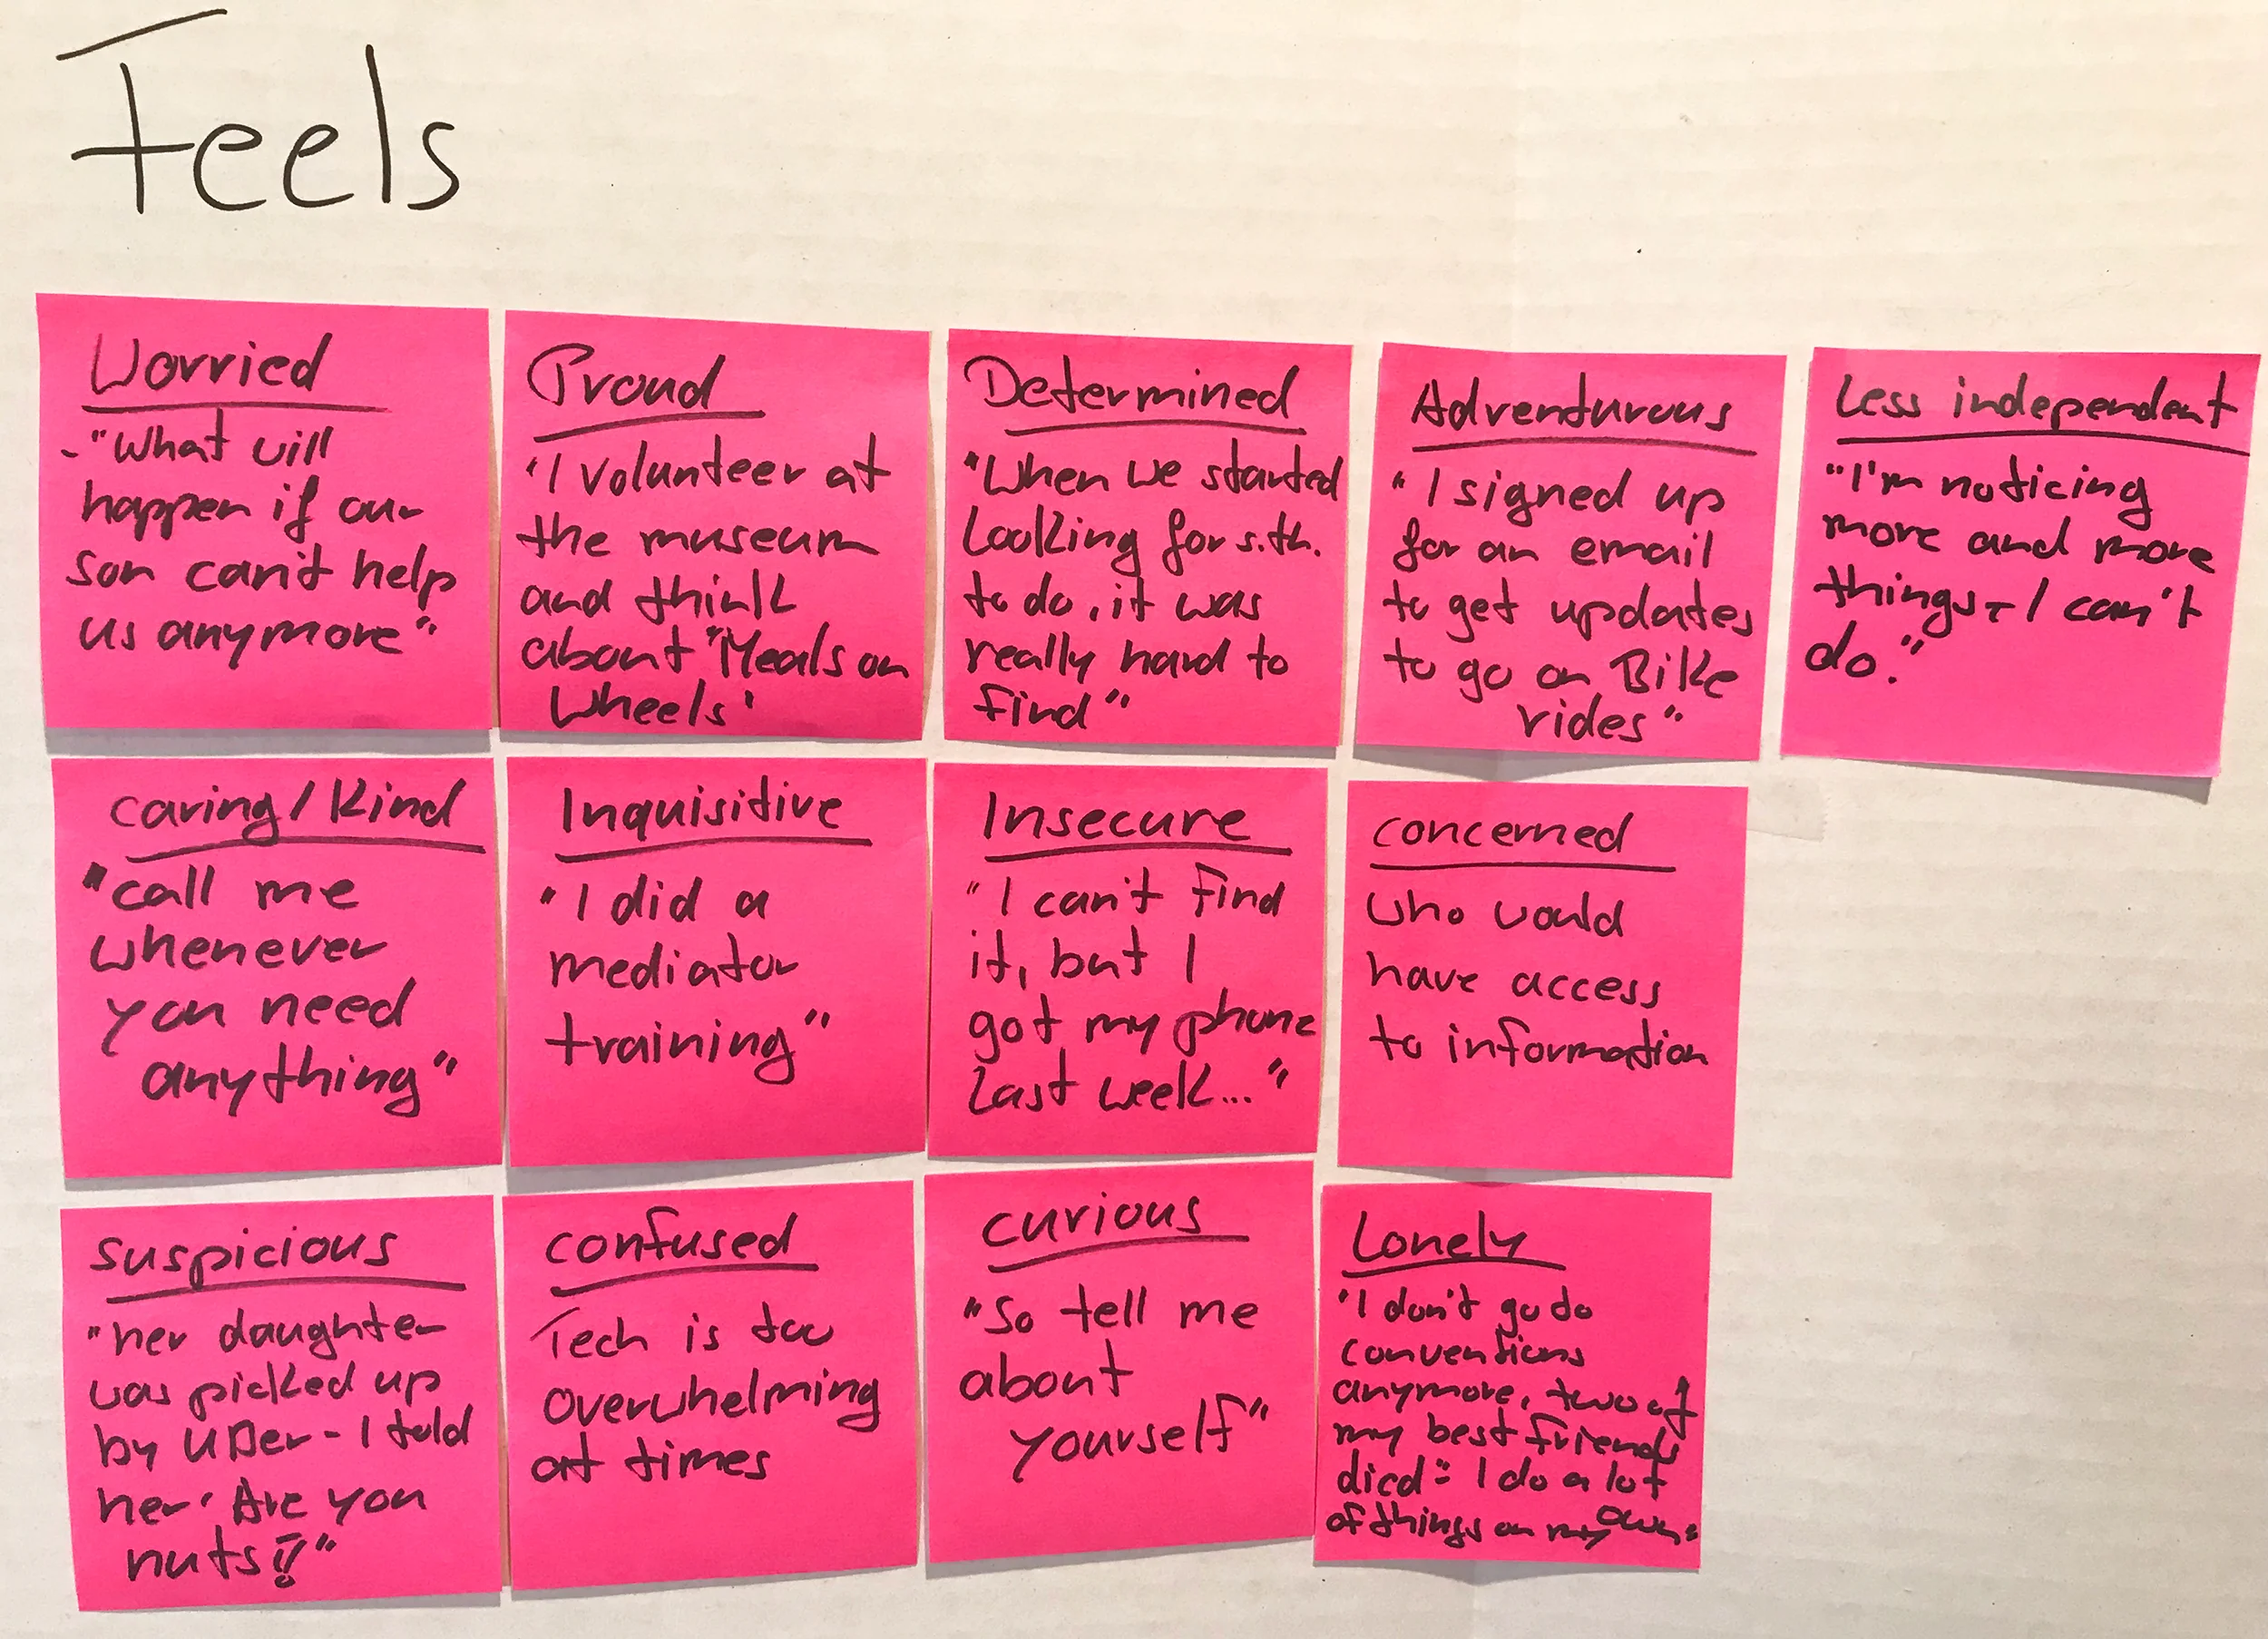 Feels
Worried
- "What will
happen if our
son can't help
us anymore"
Proud
"I volunteer at
the museum
and think
about "Meals on
Wheels"
Determined
"When we started
Looking for s.th.
to do, it was
really hard to
find"
Adventurous
"I signed up
for an email
to get updates
to go on Bike
rides"
Less independent
"I'm noticing
more and more
things - I can't
do."
caring/Kind
"call me
whenever
you need
anything"
Inquisitive
"I did a
mediator
training"
Insecure
"I can't find
it, but I
got my phone
Last week..."
concerned
who would
have access
to information
suspicious
"her daughter
was picked up
by UBer - I told
her 'Are you
nuts!?"
confused
Tech is too
overwhelming
at times
curious
"So tell me
about
yourself"
Lonely
"I don't go to
conventions
anymore, two of
my best friends
died - I do a lot
of things on my own"